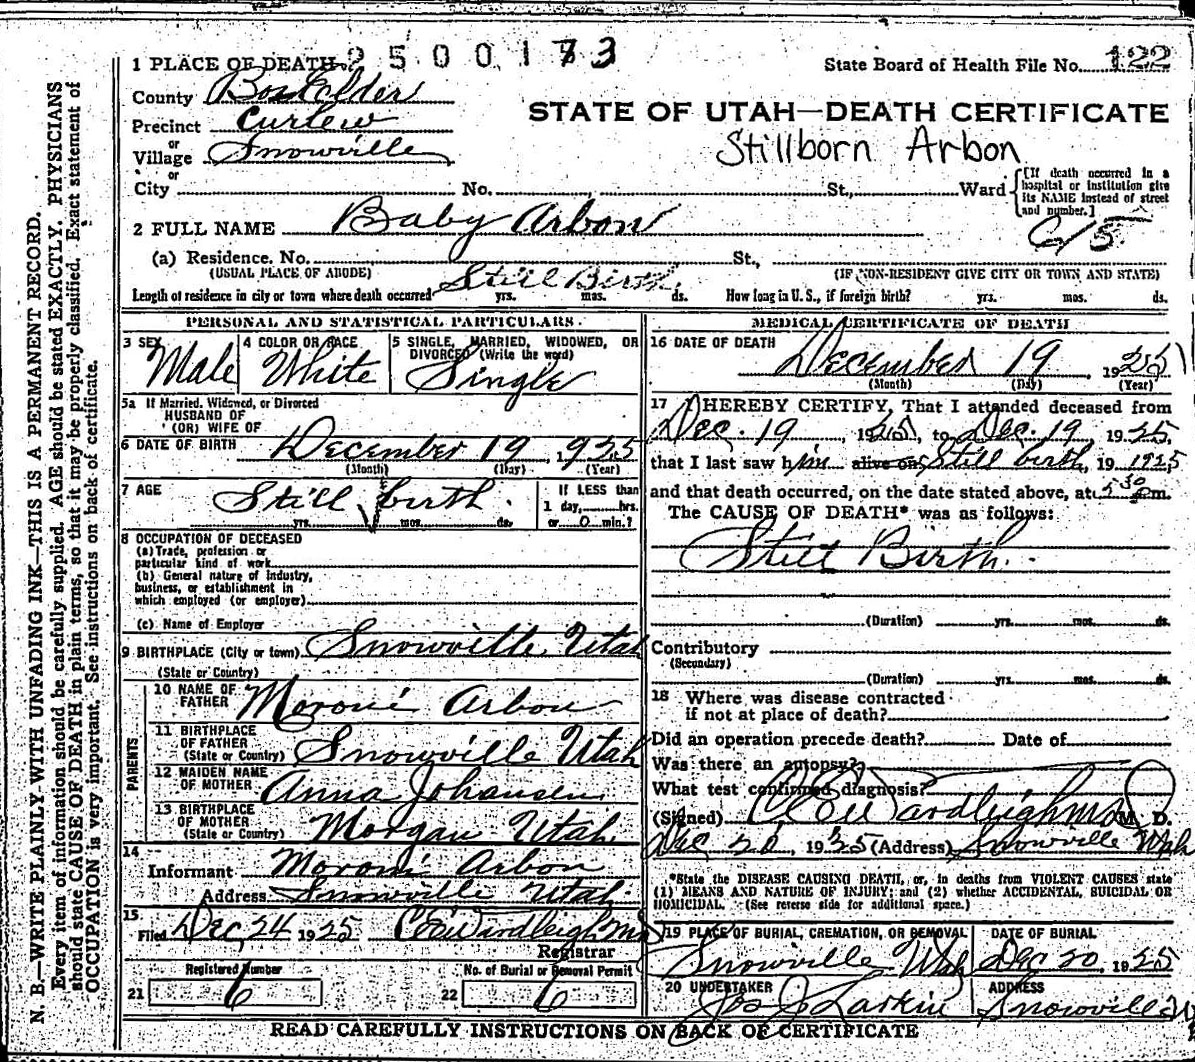 2500173
1 PLACE OF DEATH
State Board of Health File No. 122
County Box Elder
STATE OF UTAH—DEATH CERTIFICATE
Precinct Curlew
or
Village Snowville
Stillborn Arbon
or
City No. St., Ward
[If death occurred in a hospital or institution give its NAME instead of street and number.]
2 FULL NAME Baby Arbon
(a) Residence. No. St.,
(USUAL PLACE OF ABODE) (IF NON-RESIDENT GIVE CITY OR TOWN AND STATE)
Still Birth
Length of residence in city or town where death occurred yrs. mos. ds. How long in U. S., if foreign birth? yrs. mos. ds.
PERSONAL AND STATISTICAL PARTICULARS.
3 SEX 4 COLOR OR RACE 5 SINGLE, MARRIED, WIDOWED, OR DIVORCED (Write the word)
Male White Single
5a If Married, Widowed, or Divorced
HUSBAND OF
(OR) WIFE OF
6 DATE OF BIRTH December 19, 1925
(Month) (Day) (Year)
7 AGE Still birth.
yrs. mos. ds.
If LESS than
1 day, hrs.
or 0 min.?
8 OCCUPATION OF DECEASED
(a) Trade, profession or
particular kind of work
(b) General nature of industry,
business, or establishment in
which employed (or employer)
(c) Name of Employer
9 BIRTHPLACE (City or town) Snowville Utah
(State or Country)
PARENTS
10 NAME OF FATHER Moroni Arbon
11 BIRTHPLACE OF FATHER
(State or Country) Snowville Utah
12 MAIDEN NAME OF MOTHER Anna Johansen
13 BIRTHPLACE OF MOTHER
(State or Country) Morgan Utah.
14
Informant Moroni Arbon
Address Snowville Utah
15
Filed Dec 24 1925 C E Wardleigh MD
Registrar
Registered Number No. of Burial or Removal Permit
21 6 22 6
MEDICAL CERTIFICATE OF DEATH
16 DATE OF DEATH
December 19, 1925
(Month) (Day) (Year)
17 I HEREBY CERTIFY, That I attended deceased from
Dec. 19, 1925, to Dec. 19, 1925,
that I last saw him alive on Still birth, 19 1925
and that death occurred, on the date stated above, at 5 30 m.
The CAUSE OF DEATH* was as follows:
Still Birth.
(Duration) yrs. mos. ds.
Contributory
(Secondary)
(Duration) yrs. mos. ds.
18 Where was disease contracted
if not at place of death?
Did an operation precede death? Date of
Was there an autopsy?
What test confirmed diagnosis?
(Signed) C E Wardleigh MD M. D.
Dec 20, 1925 (Address) Snowville Utah
*State the DISEASE CAUSING DEATH, or, in deaths from VIOLENT CAUSES state
(1) MEANS AND NATURE OF INJURY; and (2) whether ACCIDENTAL, SUICIDAL OR
HOMICIDAL. (See reverse side for additional space.)
19 PLACE OF BURIAL, CREMATION, OR REMOVAL DATE OF BURIAL
Snowville Utah Dec 20, 1925
20 UNDERTAKER ADDRESS
Jos J Larkin Snowville U
READ CAREFULLY INSTRUCTIONS ON BACK OF CERTIFICATE
N. B.—WRITE PLAINLY WITH UNFADING INK—THIS IS A PERMANENT RECORD.
Every item of information should be carefully supplied. AGE should be stated EXACTLY. PHYSICIANS
should state CAUSE OF DEATH in plain terms, so that it may be properly classified. Exact statement of
OCCUPATION is very important. See instructions on back of certificate.